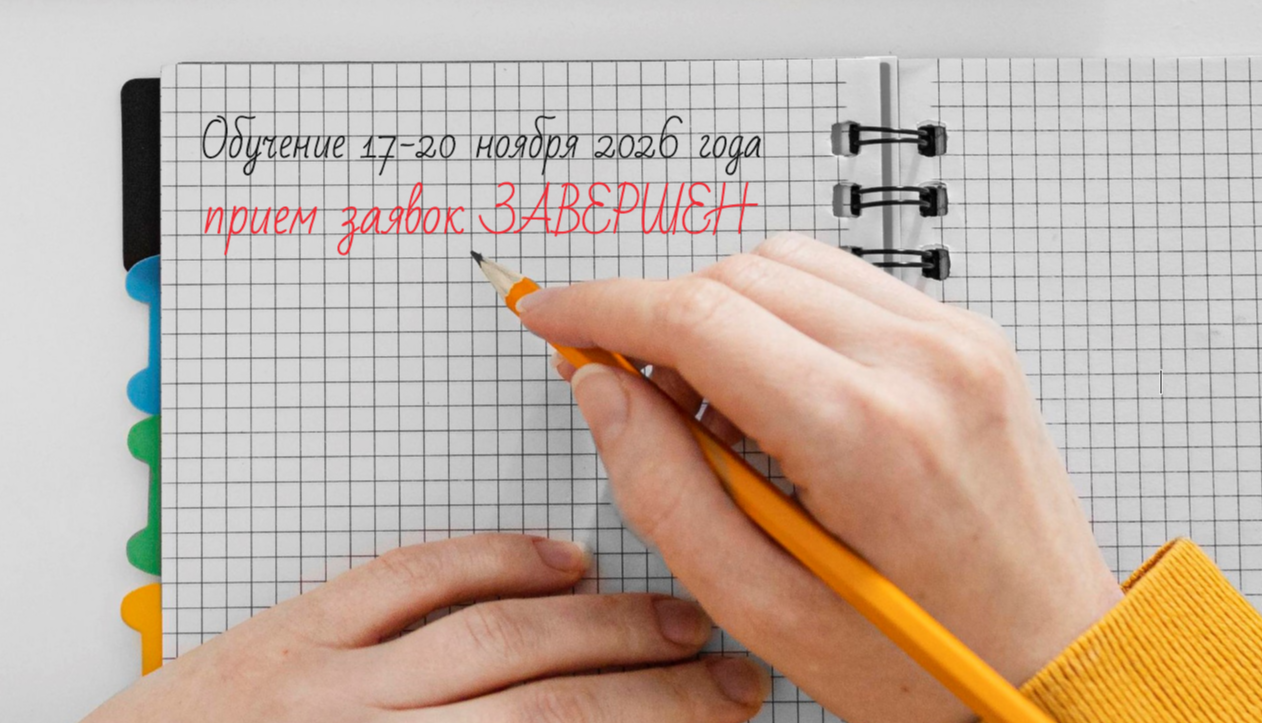 Обучение 17-20 ноября 2026 года
прием заявок ЗАВЕРШЕН